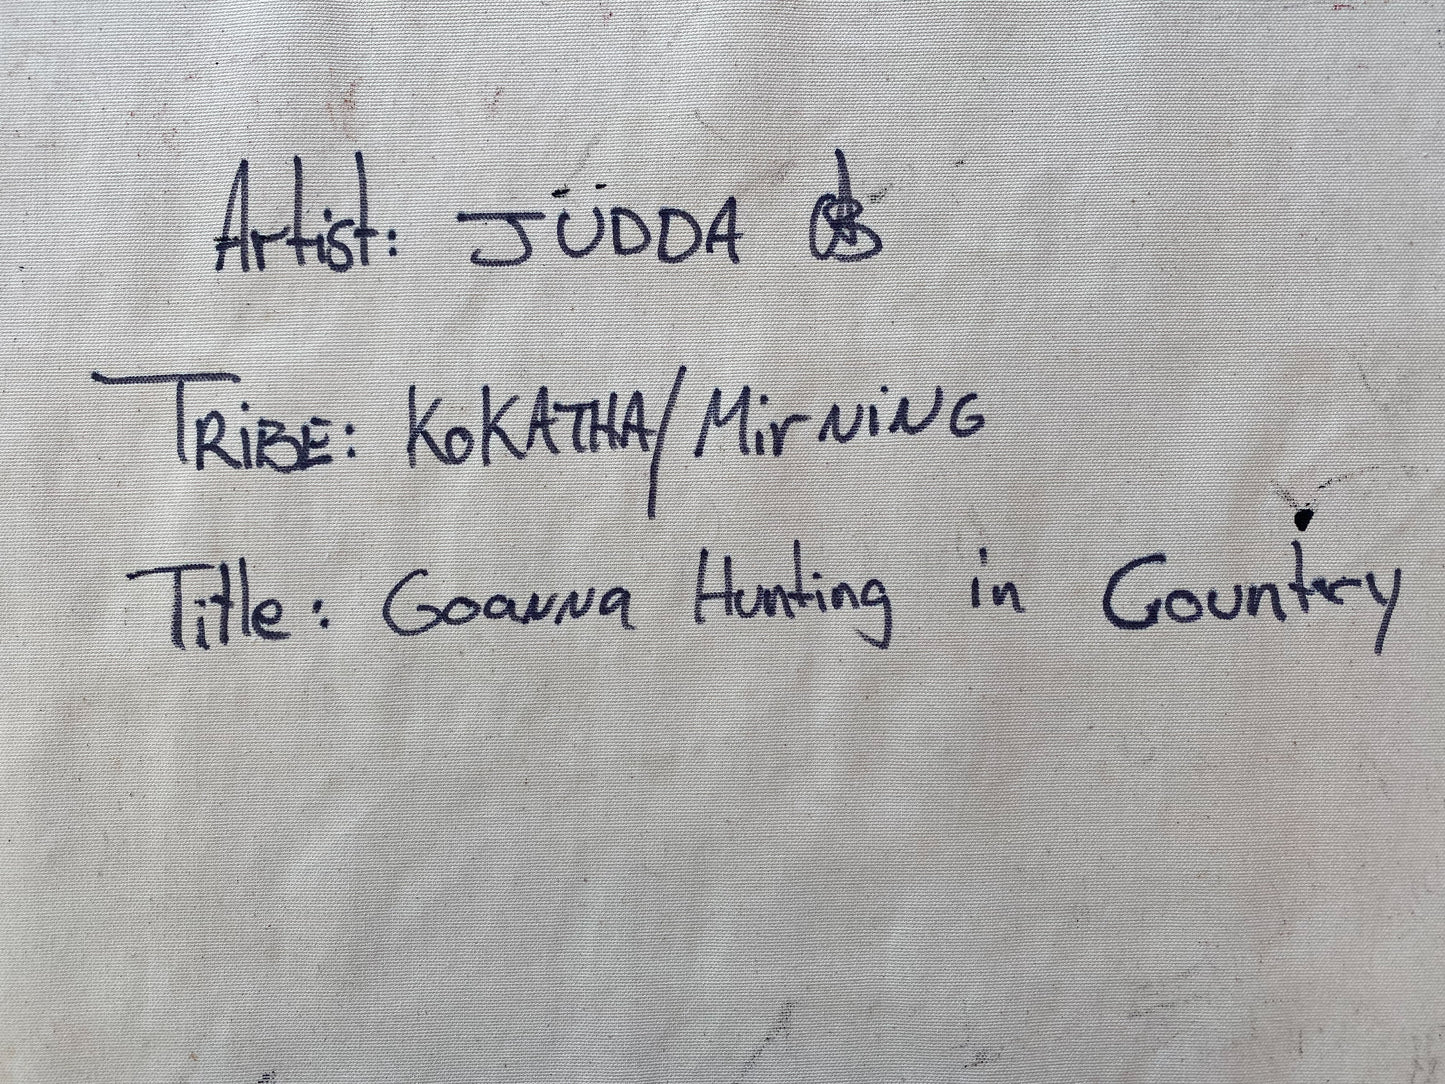 Artist: JÜDDA
TRiBE: KoKATHA/MirNiNG
Title: Goanna Hunting in Country